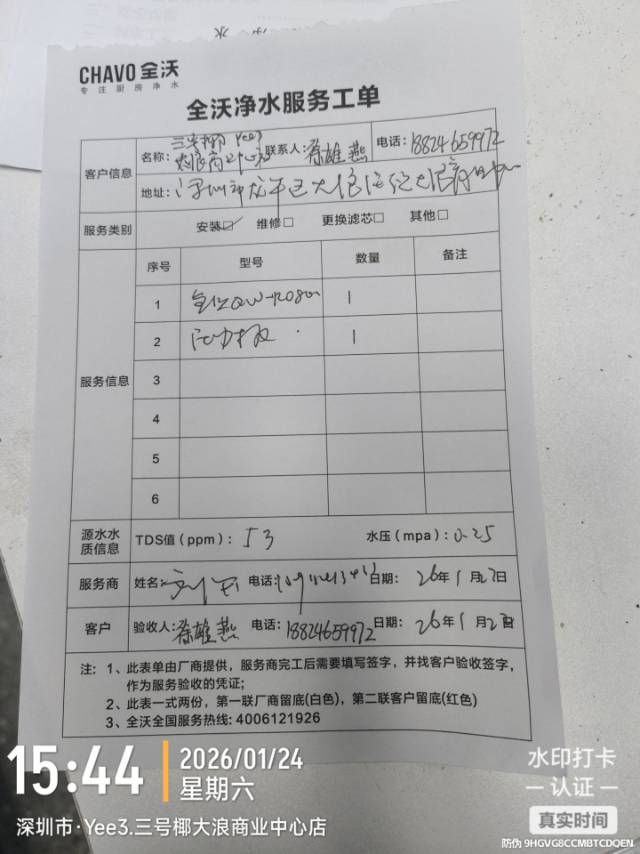 CHAVO 全沃
专注厨房净水
全沃净水服务工单
客户信息
名称: 三号椰 Yee3 大浪商业中心店 联系人: 徐雄燕 电话: 18824659972
地址: 深圳市龙华区大浪
服务类别 安装☑ 维修□ 更换滤芯□ 其他□
服务信息
序号 型号 数量 备注
1 全沃QW-RO800 1
2 1
3
4
5
6
源水水质信息 TDS值(ppm): 53 水压(mpa): 0.25
服务商 姓名: 电话: 日期: 26年1月27日
客户 验收人: 徐雄燕 电话: 18824659972 日期: 26年1月27日
注: 1、此表单由厂商提供，服务商完工后需要填写签字，并找客户验收签字，
作为服务验收的凭证;
2、此表一式两份，第一联厂商留底(白色)，第二联客户留底(红色)
3、全沃全国服务热线: 4006121926
15:44
2026/01/24
星期六
深圳市·Yee3.三号椰大浪商业中心店
水印打卡
认证
真实时间
防伪 9HGVG8CCMBTCDOEN